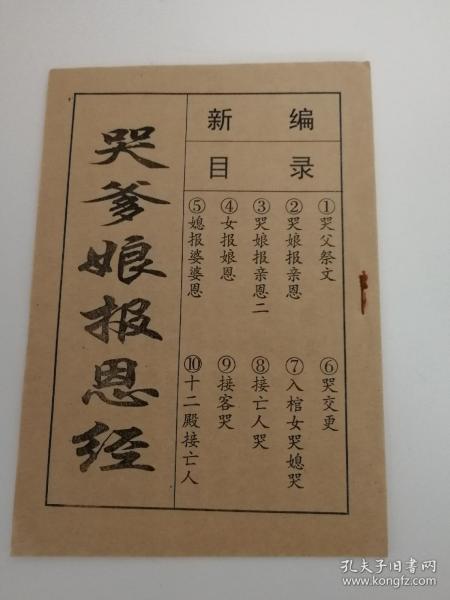 哭爹娘报恩经
新编
目录
①哭父祭文
②哭娘报亲恩
③哭娘报亲恩二
④女报娘恩
⑤媳报婆婆恩
⑥哭交更
⑦入棺女哭媳哭
⑧接亡人哭
⑨接客哭
⑩十二殿接亡人
孔夫子旧书网
www.kongfz.com